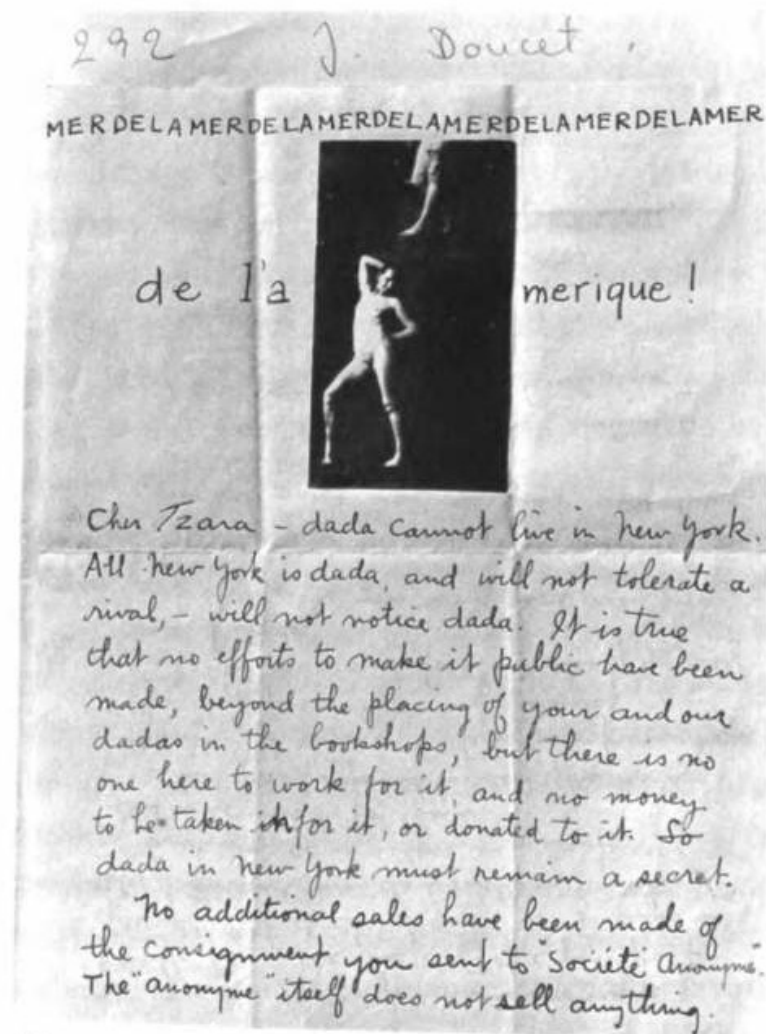 292 J. Doucet.
MERDELAMERDELAMERDELAMERDELAMERDELAMER
de l'a merique !
Cher Tzara – dada cannot live in New York.
All New York is dada, and will not tolerate a
rival, – will not notice dada. It is true
that no efforts to make it public have been
made, beyond the placing of your and our
dadas in the bookshops, but there is no
one here to work for it, and no money
to be taken in for it, or donated to it. So
dada in New York must remain a secret.
No additional sales have been made of
the consignment you sent to "Société Anonyme".
The "anonyme" itself does not sell anything.